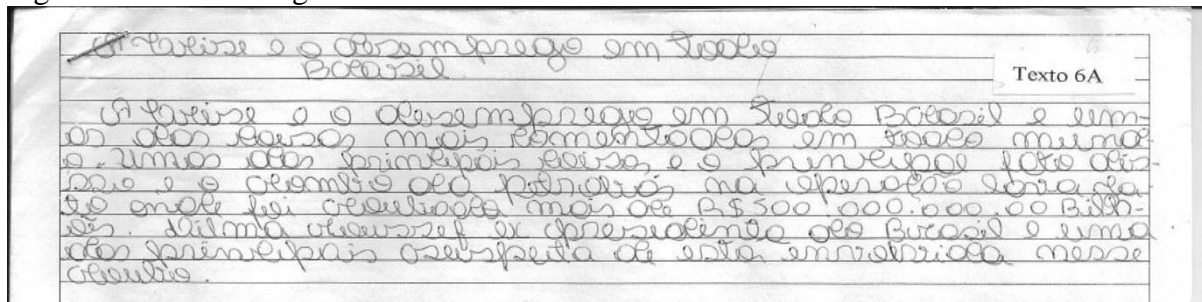 A Crise e o desemprego em todo
Brasil
Texto 6A
A Crise e o desemprego em todo Brasil e um-
as das coisas mais comentadas em todo mund-
o. Umas das principais coisa e o principal fato dis-
so e o da na operação lava ja-
to onde foi mais de R$500.000.000,00 Bilh-
ões. Dilma ex presidenta do Brasil e uma
das principais suspeita de esta envolvida nesse